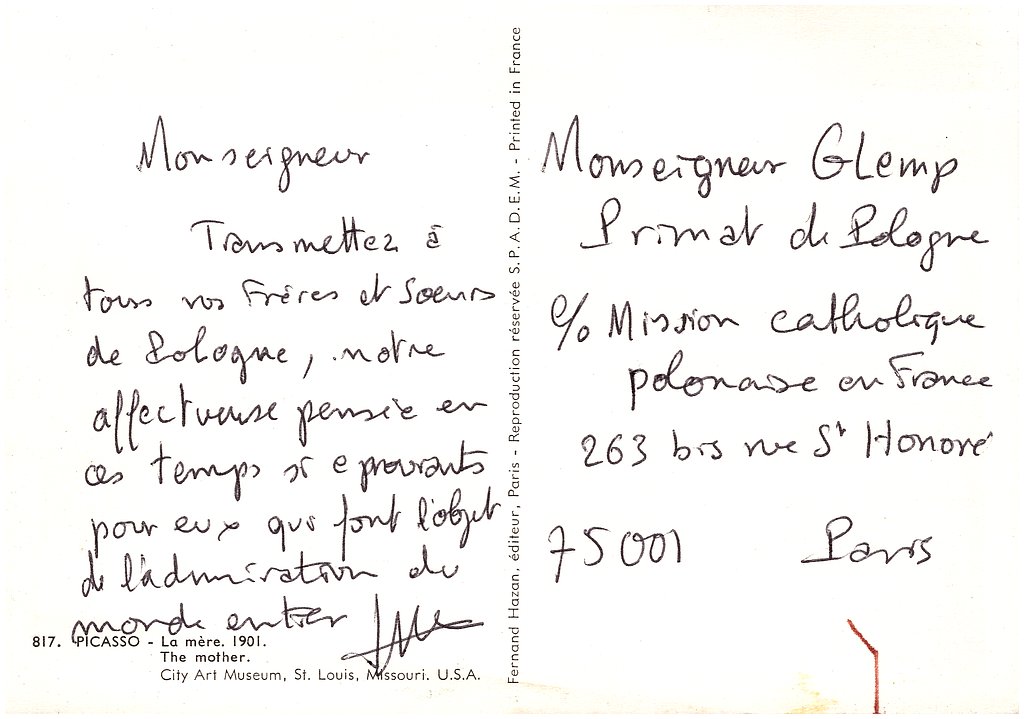 Monseigneur
Transmettez à
tous vos Frères et Soeurs
de Pologne, notre
affectueuse pensée en
ces temps si eprouvants
pour eux qui font l'objet
de l'admiration du
monde entier
817. PICASSO - La mère. 1901.
The mother.
City Art Museum, St. Louis, Missouri. U.S.A.
Fernand Hazan, éditeur, Paris - Reproduction réservée S.P.A.D.E.M. - Printed in France
Monseigneur GLemp
Primat de Pologne
c/o Mission catholique
polonaise en France
263 bis rue St Honoré
75001 Paris